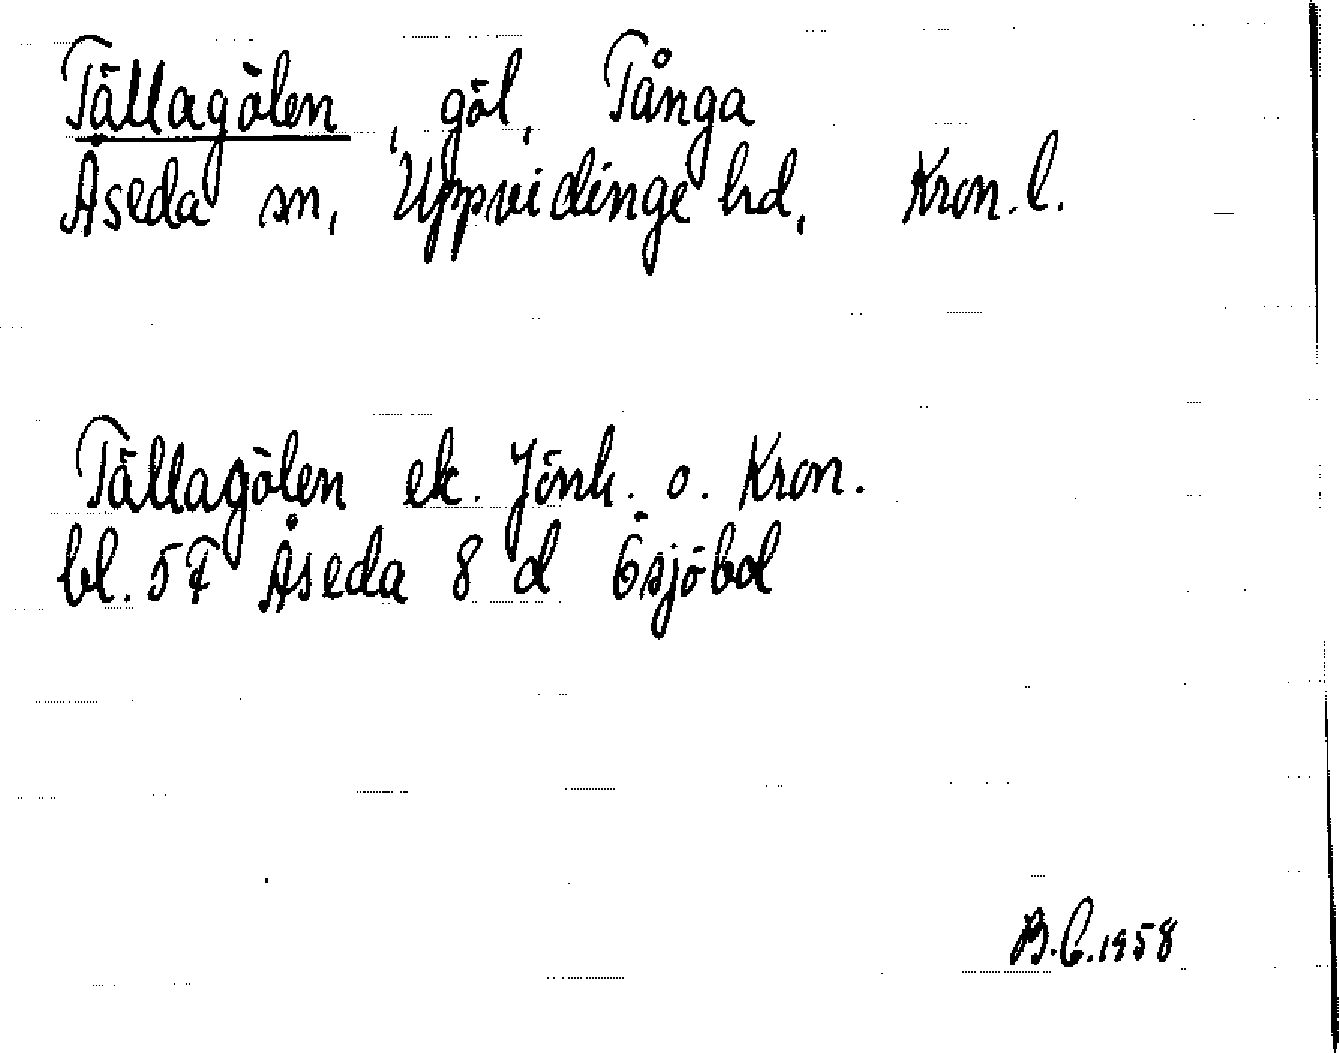 Tällagölen, göl, Tånga
Åseda sn, Uppvidinge hd, Kron. l.
Tällagölen ek. Jönk. o. Kron.
bl. 5F Åseda 8 d Ösjöbd
B.C. 1958